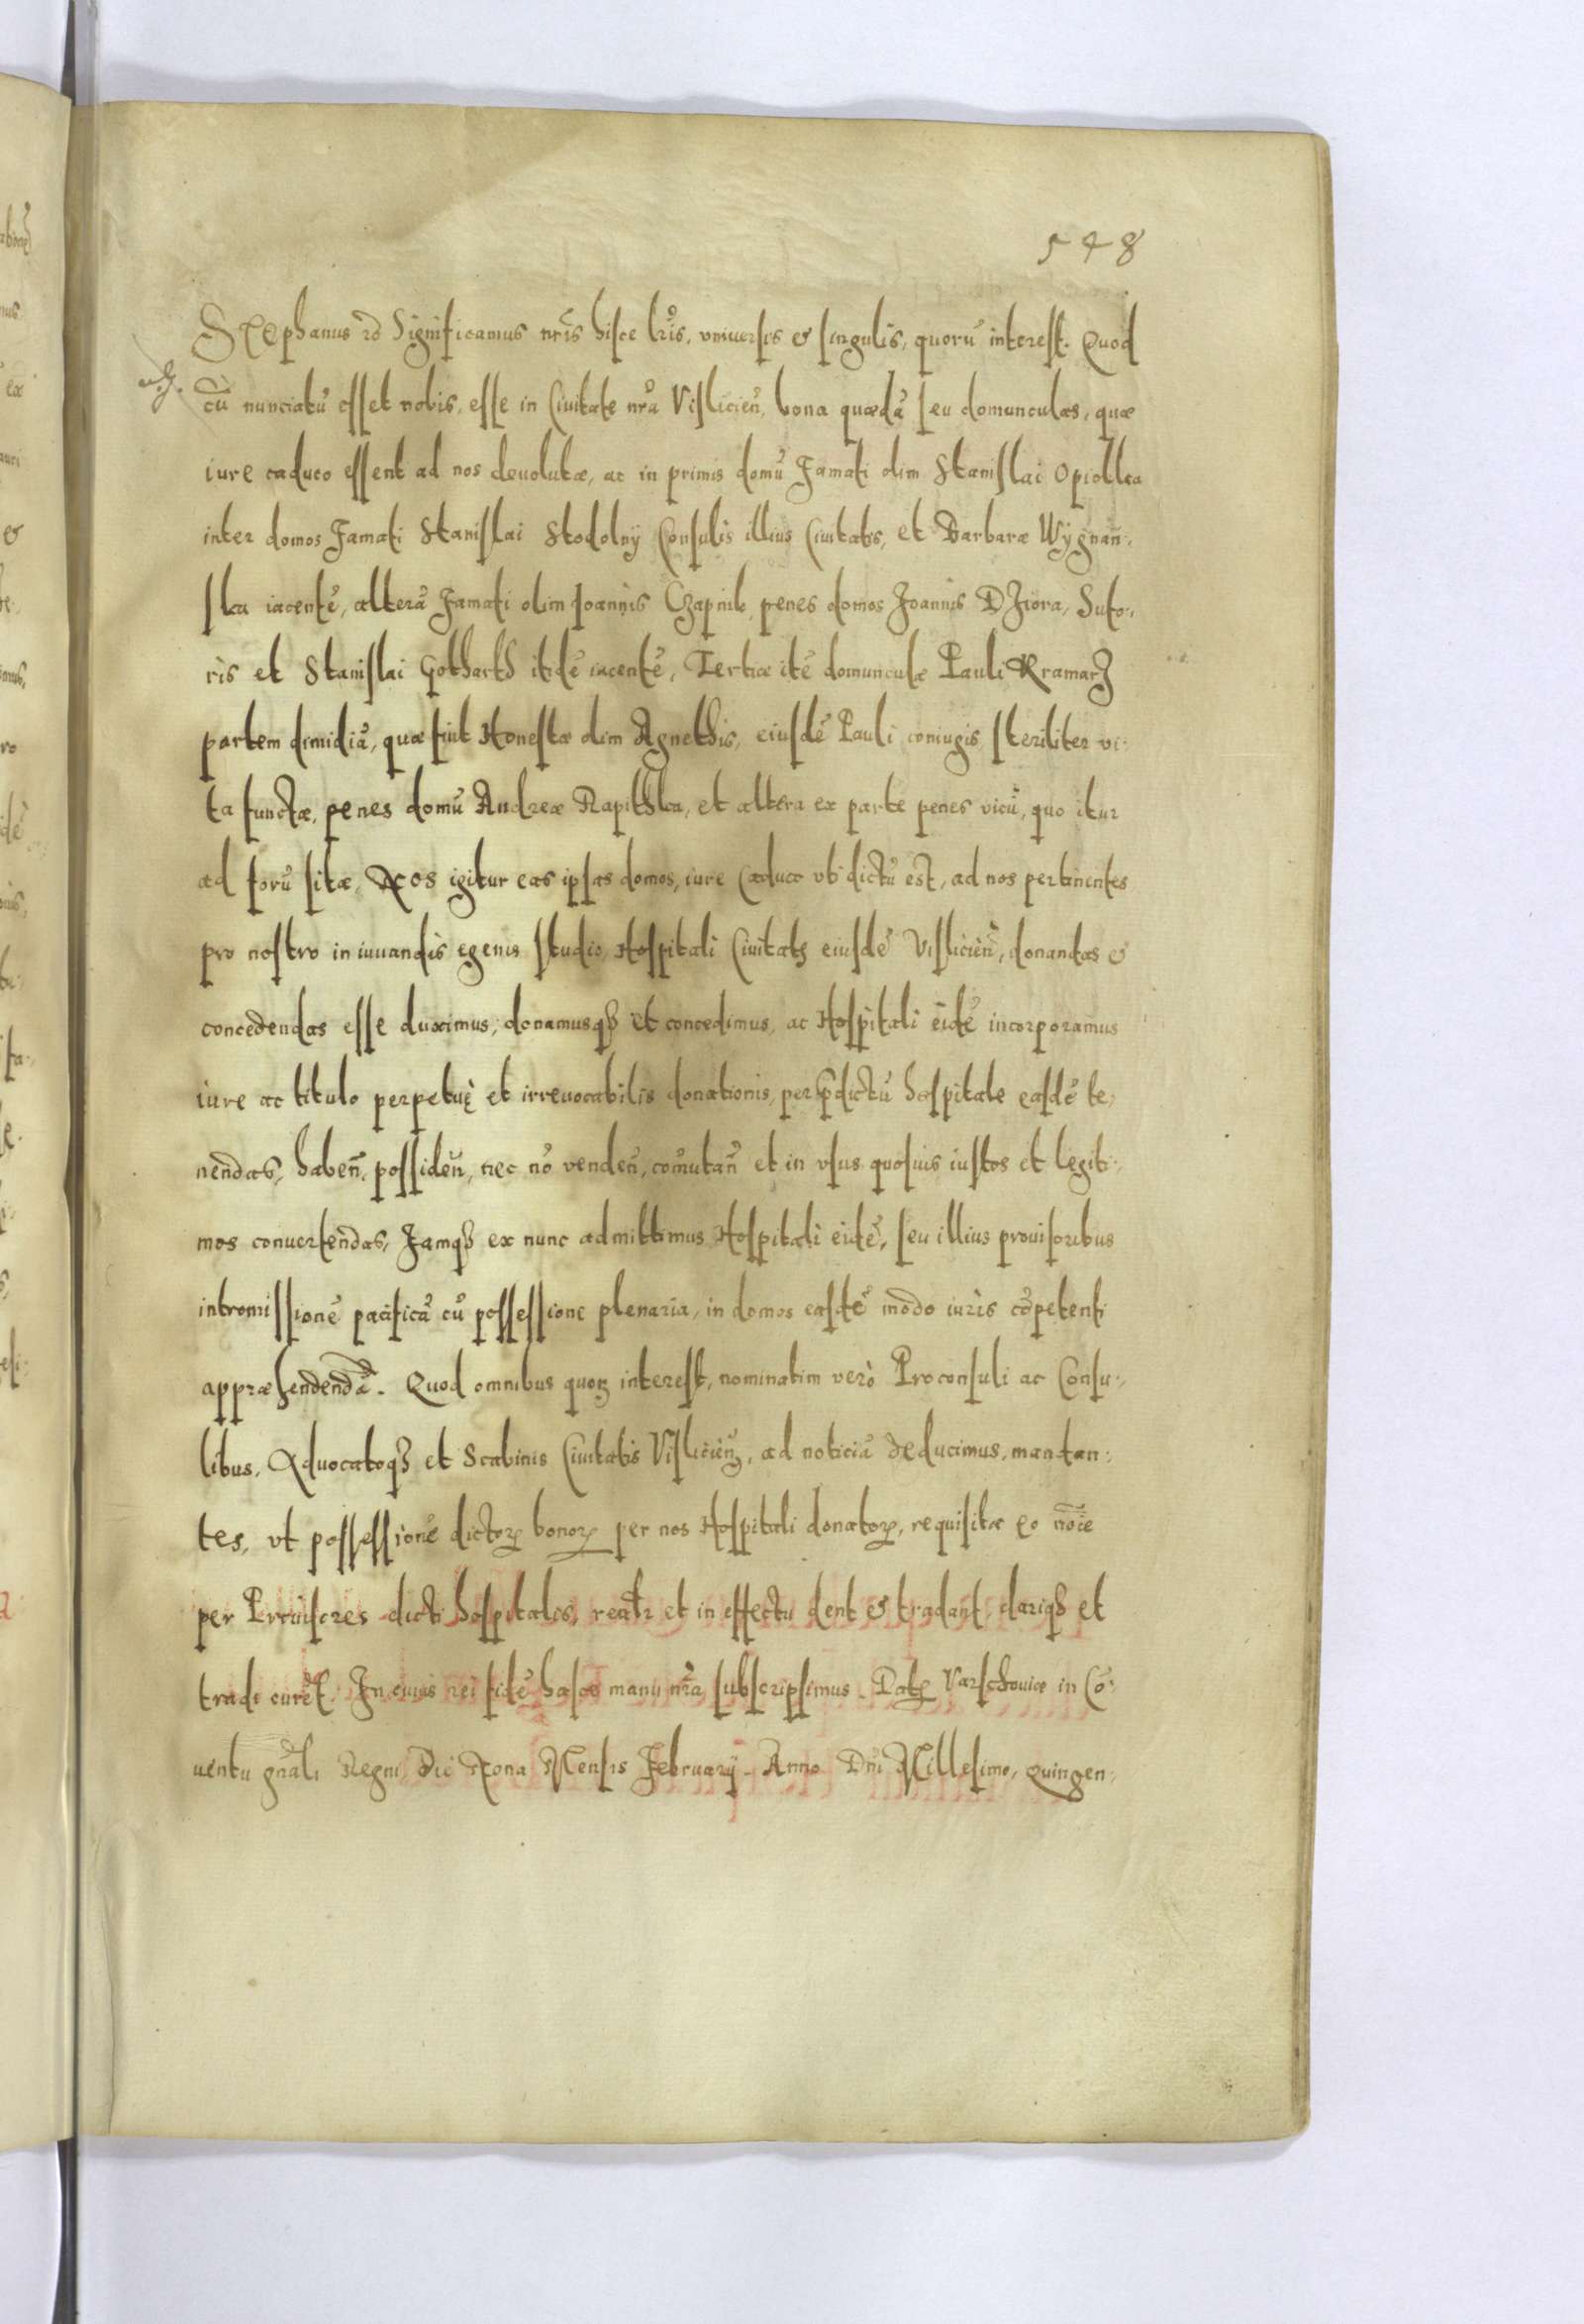 548
Stephanus etc. Significamus nr̃is hisce lr̃is, vniuersis & singulis, quorũ interest. Quod
cũ nunciatũ esset nobis, esse in Ciuitate nr̃a Vislicień, bona quædã seu domunculas, quæ
iure caduco essent ad nos deuolutæ, ac in primis domũ Famati olim Stanislai Opiolka
inter domos Famati Stanislai Stodolny Consulis illius Ciuitatis, et Barbaræ Wygnan:
ska iacentẽ, alterã Famati olim Joannis Czapnik penes domos Joannis DZiora, Suto:
ris et Stanislai Gotharth itidẽ iacentẽ, Tertiæ itẽ domunculæ Pauli KramarZ
partem dimidiã, quæ fuit Honestæ olim Agnethis, eiusdẽ Pauli coniugis steriliter vi:
ta functæ, penes domũ Andreæ Rapithka, et altera ex parte penes vicũ, quo itur
ad forũ sitæ, Nos igitur eas ipsas domos, iure caduco vti dictũ est, ad nos pertinentes
pro nostro in iuuandis egenis studio, Hospitali Ciuitatis eiusdẽ Vislicień, donandas &
concedendas esse duximus, donamusq₃ et concedimus, ac Hospitali eidẽ incorporamus
iure ac titulo perpetuę et irreuocabilis donationis, per p̃dictũ hospitale easdẽ te:
nendas, habeñ, possideñ, nec nõ vendeñ, cõmutañ et in vsus quosuis iustos et legiti:
mos conuertendas, Jamq₃ ex nunc admittimus Hospitali eidẽ, seu illius prouisoribus
intromissionẽ pacificã cũ possessione plenaria, in domos easdẽ modo iuris cõpetenti
appræhendendã. Quod omnibus quoꝝ interest, nominatim verò Proconsuli ac Consu:
libus, Aduocatoq₃ et Scabinis Ciuitatis Vislicień, ad noticiã deducimus, mandan:
tes, vt possessionẽ dictoꝝ bonoꝝ per nos Hospitali donatoꝝ, requisitæ eo noĩe
per Prouisores dicti hospitalis, realr̃ et in effectu dent & tradant, dariq₃ et
tradi curẽt. In cuius rei fidẽ hasce manu nr̃a subscripsimus. Datꝝ Varschouiæ in Cõ:
uentu gñali Regni, Die Nona Mensis February. Anno Dñi Millesimo, Quingen: